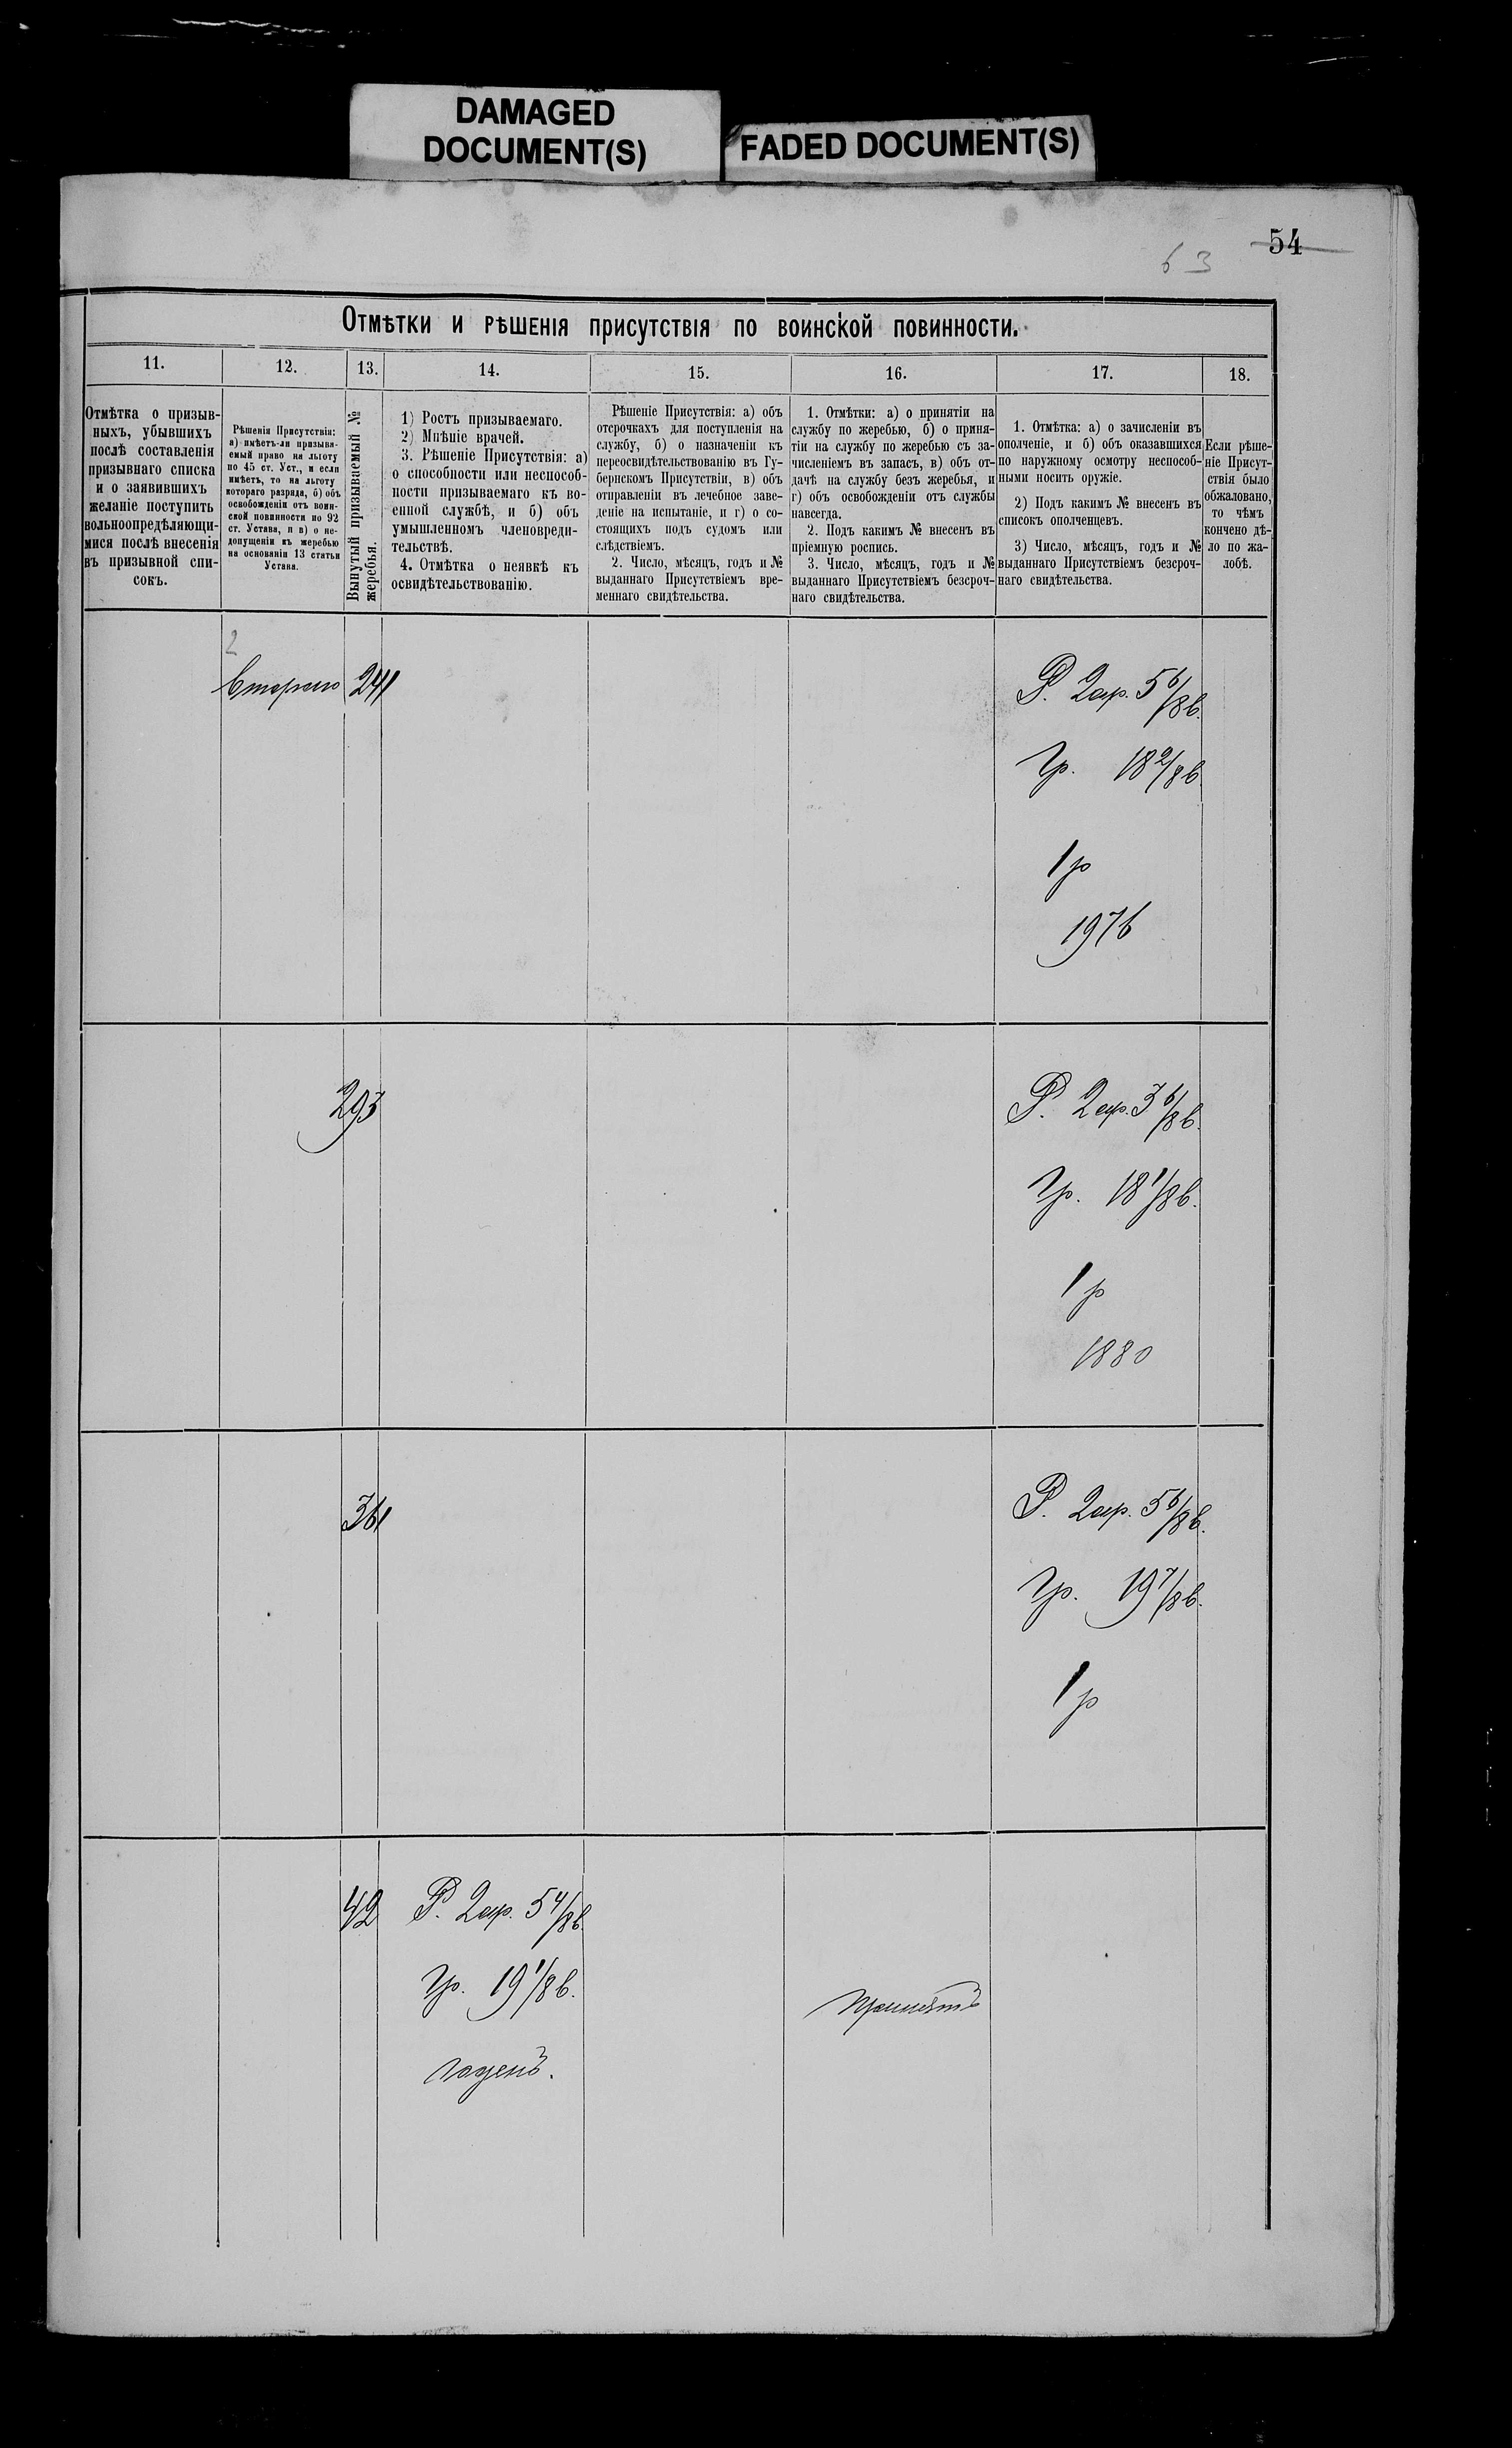 DAMAGED
DOCUMENT(S)
FADED DOCUMENT(S)
54
63
Отмѣтки и рѣшенія присутствія по воинской повинности.
11.
12.
13.
14.
15.
16.
17.
18.
Отмѣтка о призыв-
ныхъ, убывшихъ
послѣ составленія
призывнаго списка
и о заявившихъ
желаніе поступить
вольноопредѣляющи-
мися послѣ внесенія
въ призывной спи-
сокъ.
Рѣшенія Присутствія:
а) имѣетъ-ли призыва-
емый право на льготу
по 45 ст. Уст., и если
имѣетъ, то на льготу
котораго разряда, б) объ
освобожденіи отъ воин-
ской повинности по 92
ст. Устава, и в) о не-
допущеніи къ жеребью
на основаніи 13 статьи
Устава.
Вынутый призываемый №
жеребья.
1) Ростъ призываемаго.
2) Мнѣніе врачей.
3. Рѣшеніе Присутствія: а)
о способности или неспособ-
ности призываемаго къ во-
енной службѣ, и б) объ
умышленномъ членовреди-
тельствѣ.
4. Отмѣтка о неявкѣ къ
освидѣтельствованію.
Рѣшеніе Присутствія: а) объ
отсрочкахъ для поступленія на
службу, б) о назначеніи къ
переосвидѣтельствованію въ Гу-
бернскомъ Присутствіи, в) объ
отправленіи въ лечебное заве-
деніе на испытаніе, и г) о со-
стоящихъ подъ судомъ или
слѣдствіемъ.
2. Число, мѣсяцъ, годъ и №
выданнаго Присутствіемъ вре-
меннаго свидѣтельства.
1. Отмѣтки: а) о принятіи на
службу по жеребью, б) о приня-
тіи на службу по жеребью съ за-
численіемъ въ запасъ, в) объ от-
дачѣ на службу безъ жеребья, и
г) объ освобожденіи отъ службы
навсегда.
2. Подъ какимъ № внесенъ въ
пріемную роспись.
3. Число, мѣсяцъ, годъ и №
выданнаго Присутствіемъ безсроч-
наго свидѣтельства.
1. Отмѣтка: а) о зачисленіи въ
ополченіе, и б) объ оказавшихся
по наружному осмотру неспособ-
ными носить оружіе.
2) Подъ какимъ № внесенъ въ
списокъ ополченцевъ.
3) Число, мѣсяцъ, годъ и №
выданнаго Присутствіемъ безсроч-
наго свидѣтельства.
Если рѣше-
ніе Присут-
ствія было
обжаловано,
то чѣмъ
кончено дѣ-
ло по жа-
лобѣ.
2
Втораго
241
Р. 2ар. 5 6/8 в.
Гр. 18 2/8 в.
1 р
1976
293
Р. 2ар. 3 6/8 в.
Гр. 18 1/8 в.
1 р
1880
361
Р. 2ар. 5 6/8 в.
Гр. 19 7/8 в.
1 р
42
Р. 2ар. 5 4/8 в.
Гр. 19 1/8 в.
Годенъ.
Принятъ